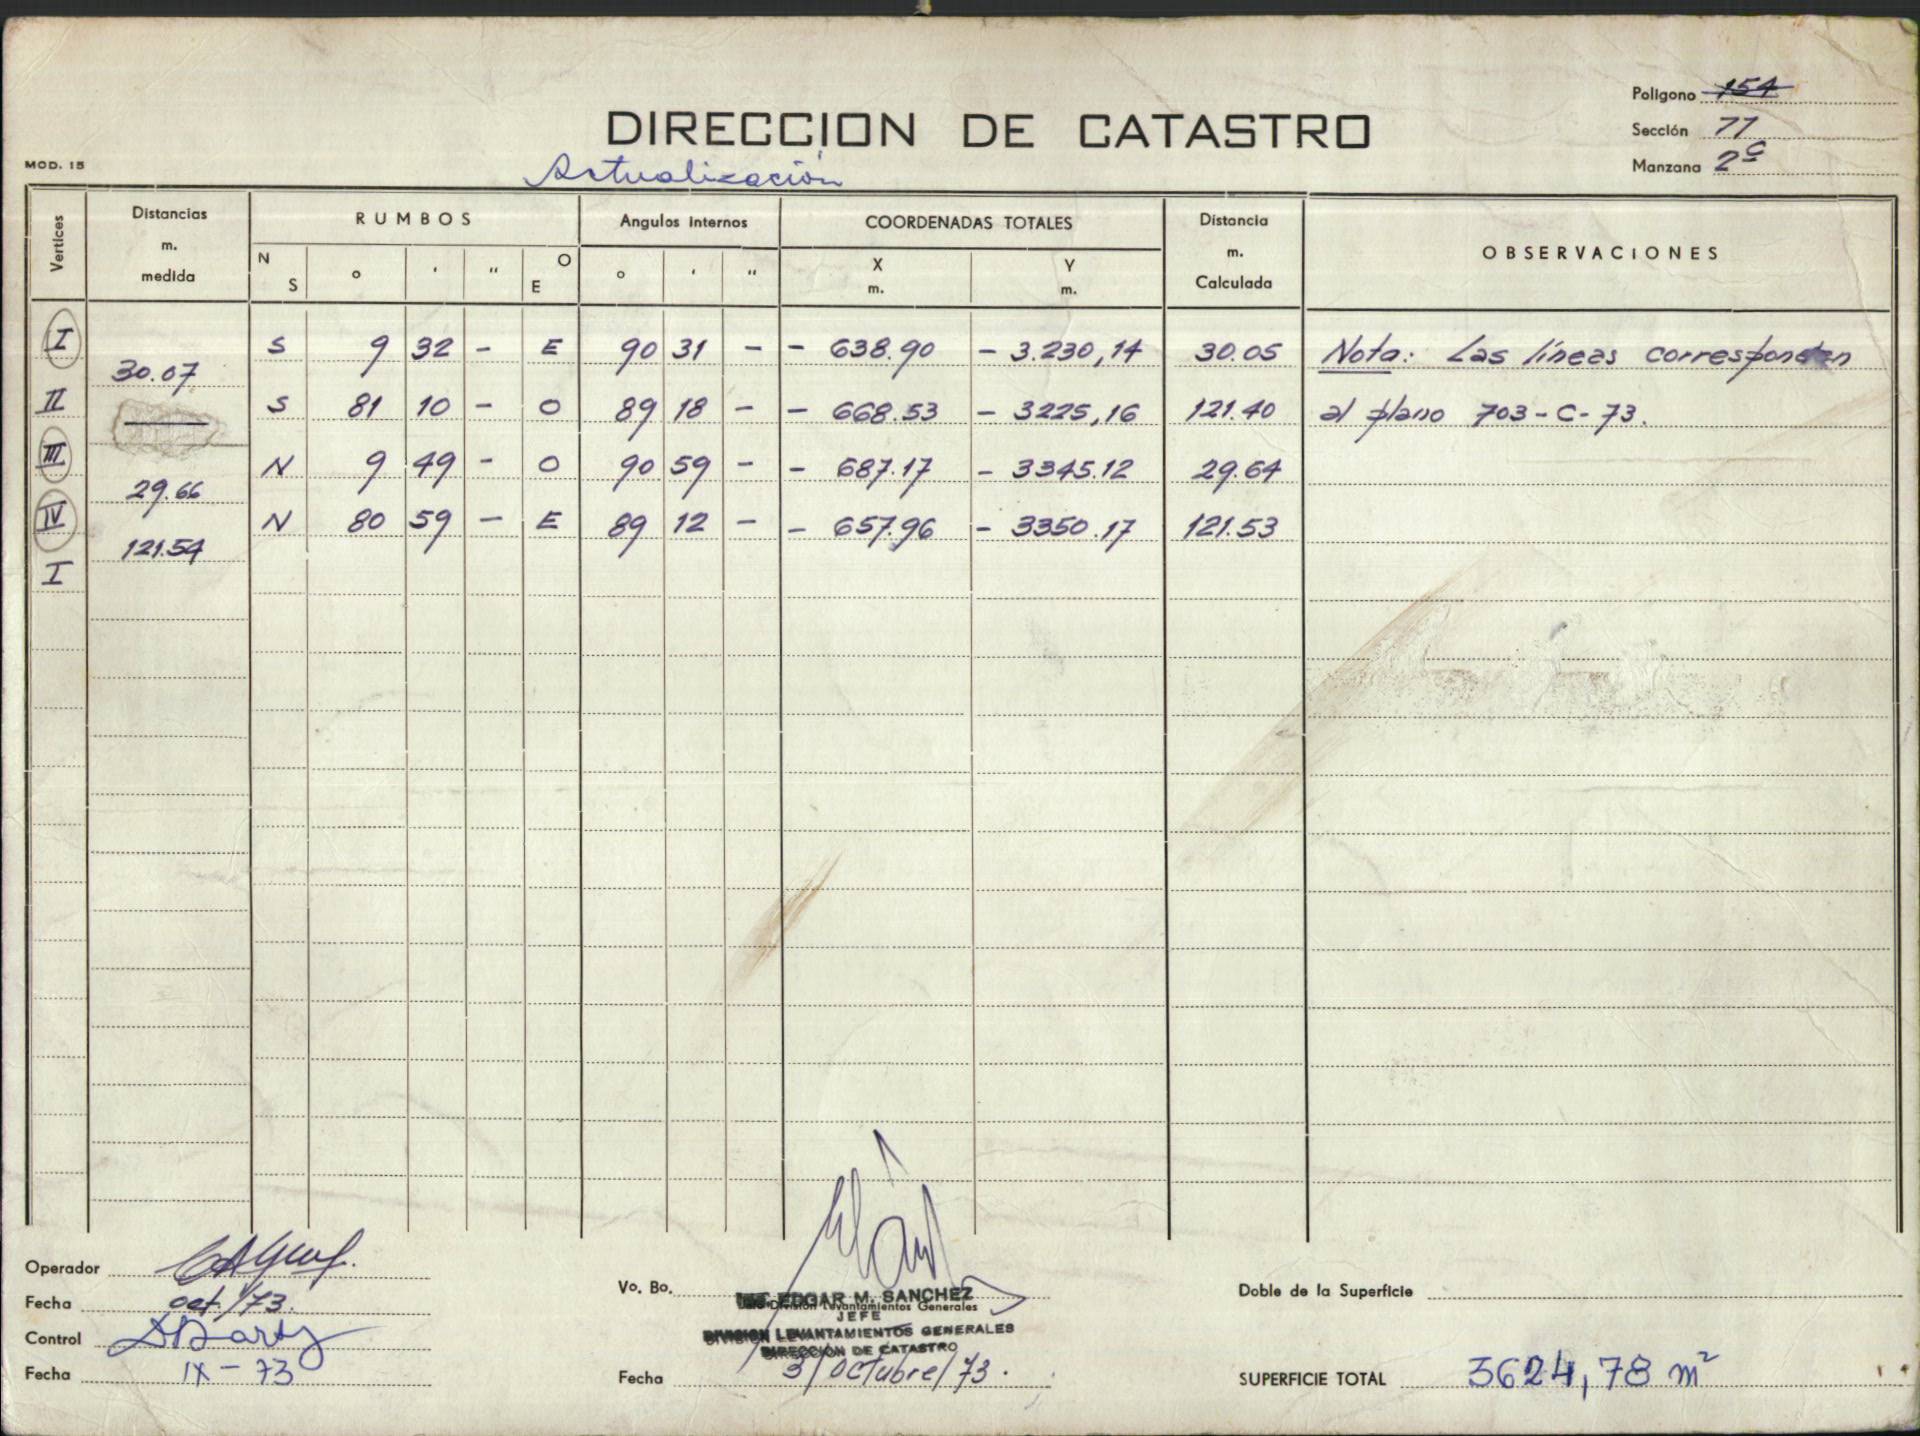 Poligono 154
DIRECCION DE CATASTRO
Sección 77
MOD. 15
Actualización
Manzana 2ª
Vertices
Distancias m. medida
RUMBOS
Angulos internos
COORDENADAS TOTALES
Distancia m. Calculada
OBSERVACIONES
N S ° ' " O E ° ' " X m. Y m.
I S 9 32 - E 90 31 - - 638.90 - 3.230,14 30.05 Nota: Las líneas corresponden
30.07
II S 81 10 - O 89 18 - - 668.53 - 3225,16 121.40 al plano 703-C-73.
III N 9 49 - O 90 59 - - 687.17 - 3345.12 29.64
29.66
IV N 80 59 - E 89 12 - - 657.96 - 3350.17 121.53
121.54
I
Operador
Fecha oct./73.
Control
Fecha IX-73
Vo. Bo.
EDGAR M. SANCHEZ
División Levantamientos Generales
JEFE
DIVISION LEVANTAMIENTOS GENERALES
DIRECCION DE CATASTRO
Fecha 3/octubre/73.
Doble de la Superficie
SUPERFICIE TOTAL 3624,78 m²